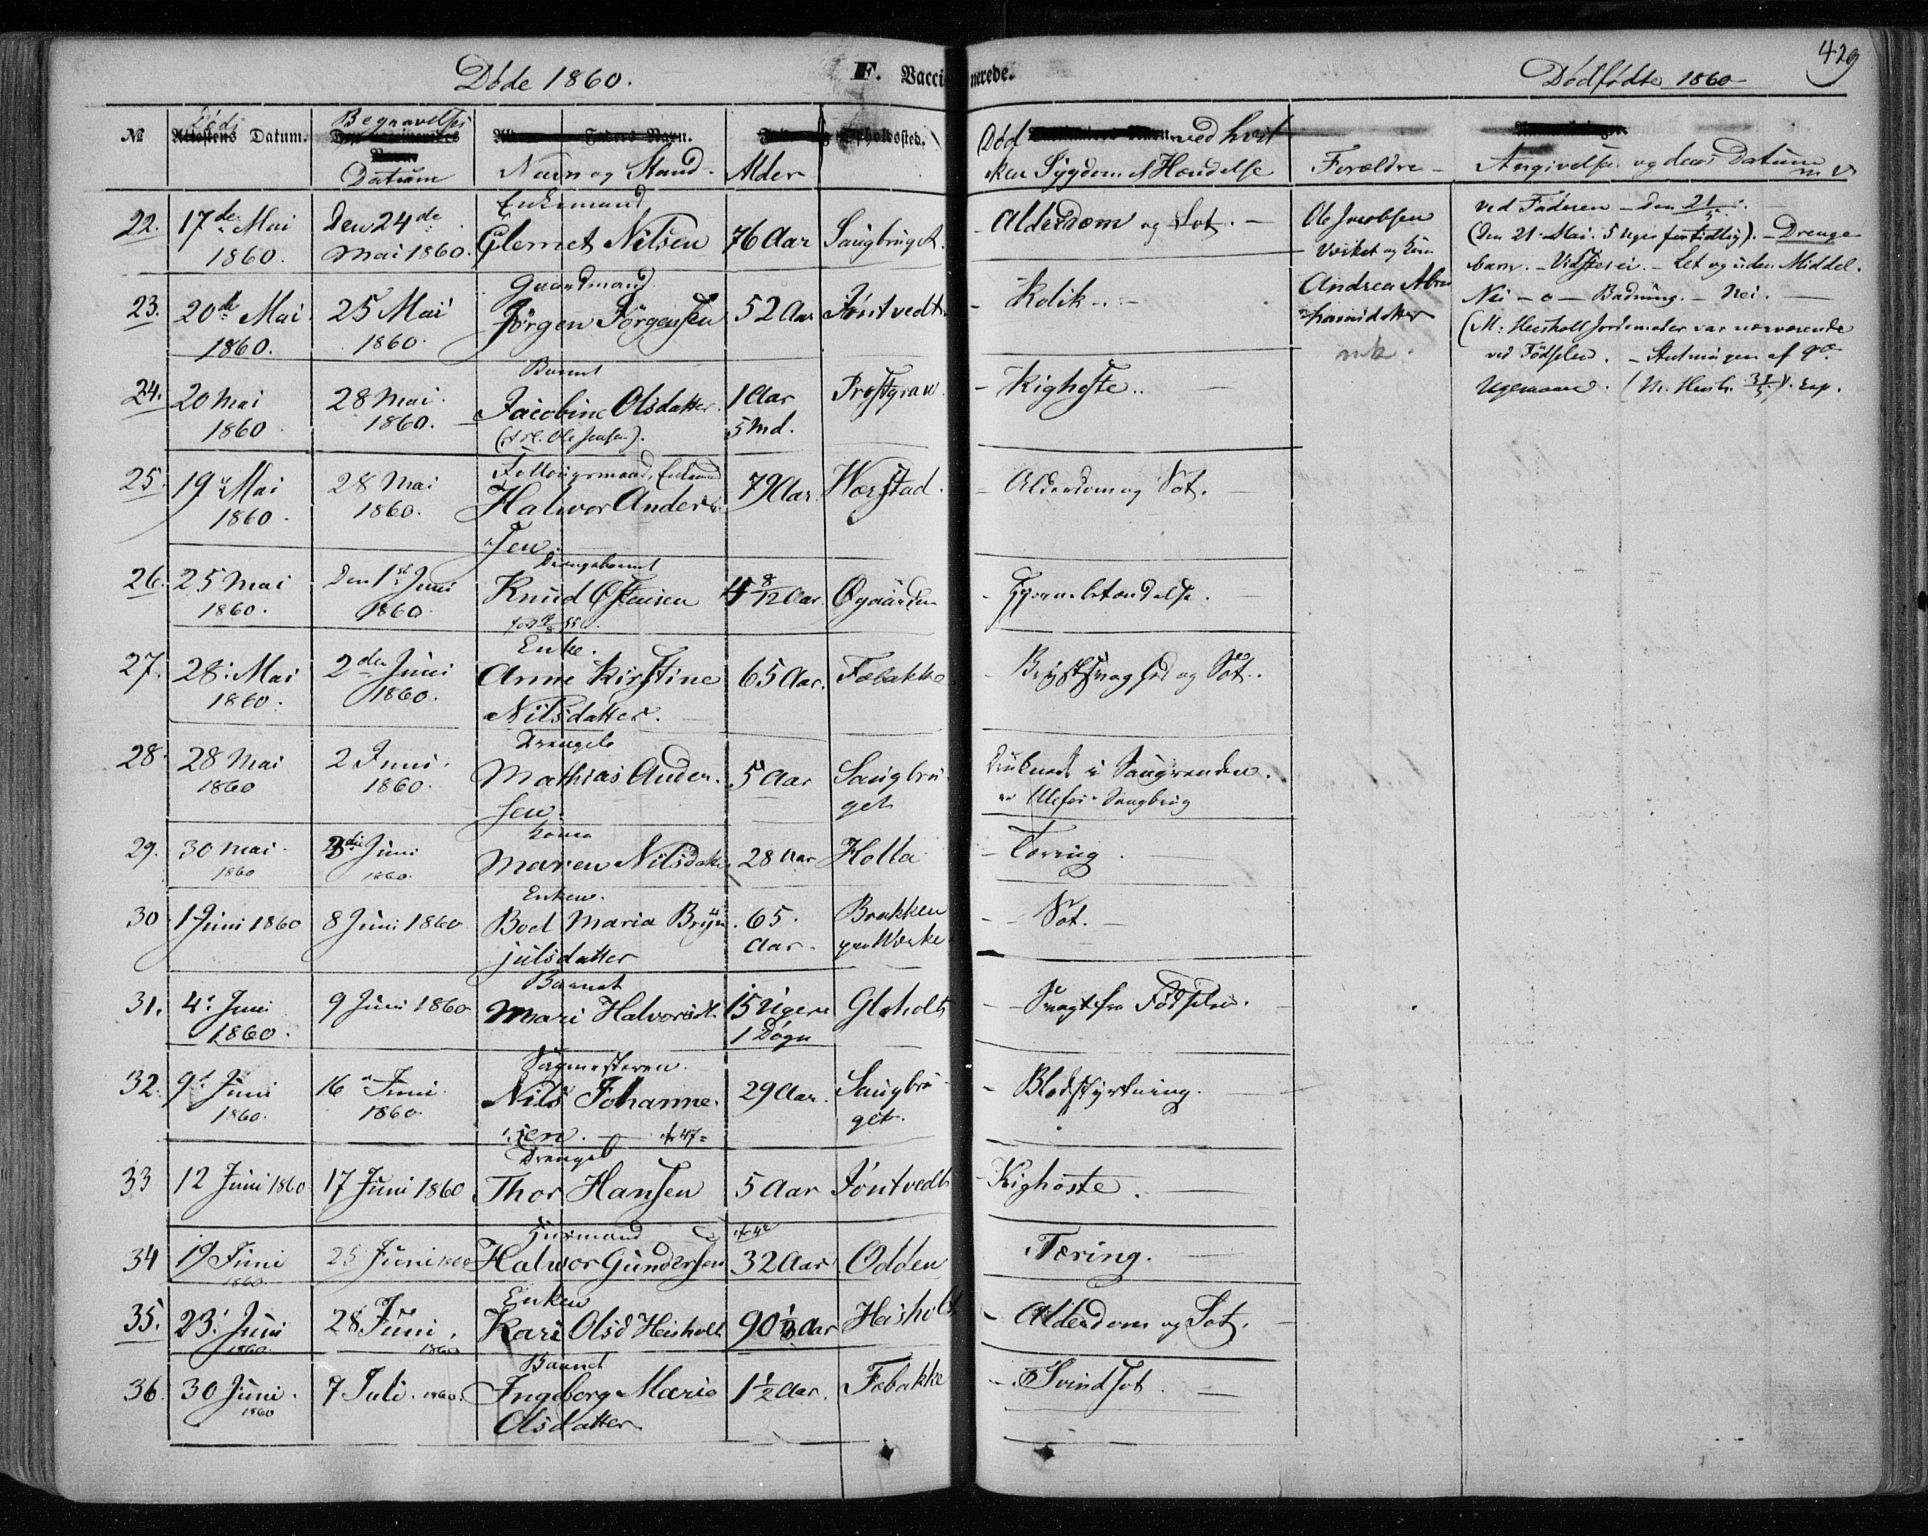 429
Døde 1860.
F. Vaccinerede.
Dødfødte 1860
№ Døds Datum. Begravelses Datum Navn og Stand. Alder Opholdssted. Død ved hvilken Sygdom el Hændelse Forældre Angivelse og dens Datum
22. 17de Mai 1860. Den 24de Mai 1860. Enkemand Clemet Nilsen 76 Aar Saugbruget. Alderdom og Sot.
23. 20de Mai 1860. 25 Mai 1860. Gaardmand Jørgen Jørgensen 52 Aar Jøntvedt Kolik.
24. 20 Mai 1860 28 Mai 1860. Barnet Jacobine Olsdatter (Ole Jensen). 1 Aar 5 Md. Præstgrav. Kighoste.
25. 19 Mai 1860. 28 Mai 1860. Enkemand Halvor Andersen 79 Aar. Værstad. Alderdom og Sot.
26. 25 Mai 1860. Den 1ste Juni 1860. Drengebarnet Knud Østensen 4 8/12 Aar. Øgaarden Hjernebetændelse.
27. 28. Mai 1860. 2den Juni 1860. Enke. Anne Kirstine Nilsdatter. 65 Aar. Fæbakke Brystsvaghed og Sot.
28. 28 Mai 1860 2 Juni 1860. Drengeb Mathias Andersen. 5 Aar Saugbruget Druknede i Saugrenden. Ulefos Saugbrug
29. 30 Mai 1860 3die Juni 1860. Kone Maren Nilsdatter 28 Aar Holla Tæring.
30 1 Juni 1860 8 Juni 1860 Enken. Boel Maria Brynjulsdatter 65 Aar. Brekken Værket Sot.
31. 4. Juni 1860. 9 Juni 1860 Barnet Mari Halvorsdt. 15 Uger 1 Døgn Gleholt Svagt fra Fødselen.
32. 9de Juni 1860. 16 Juni 1860. Sagmesteren Nils Johannesen. 29 Aar. Saugbruget. Blodstyrtning.
33 12 Juni 1860 17 Juni 1860 Drengeb Thor Hansen 5 Aar Jøntvedt Kighoste.
34 19 Juni 1860. 25 Juni 1860 Husmand Halvor Gundersen 32 Aar Odden Tæring.
35. 23. Juni 1860. 28 Juni 1860 Enken Kari Olsd Heisholt 90 1/2 Aar Heisholt Alderdom og Sot.
36. 30 Juni 1860 7 Juli 1860. Barnet Ingeborg Marie Olsdatter 1 1/2 Aar. Fæbakke Svindsot.
Ole Jacobsen
Værket og
Andrea Abra
hamsdatter
ved Faderen den 21/5.
(den 21. Mai. 5 Uger fortidlig). Drenge
barn. Let og uden Middel.
Nei - o - Badning. Nei.
(M. Heisholt Jordemoder var nærværende
ved Fødselen.